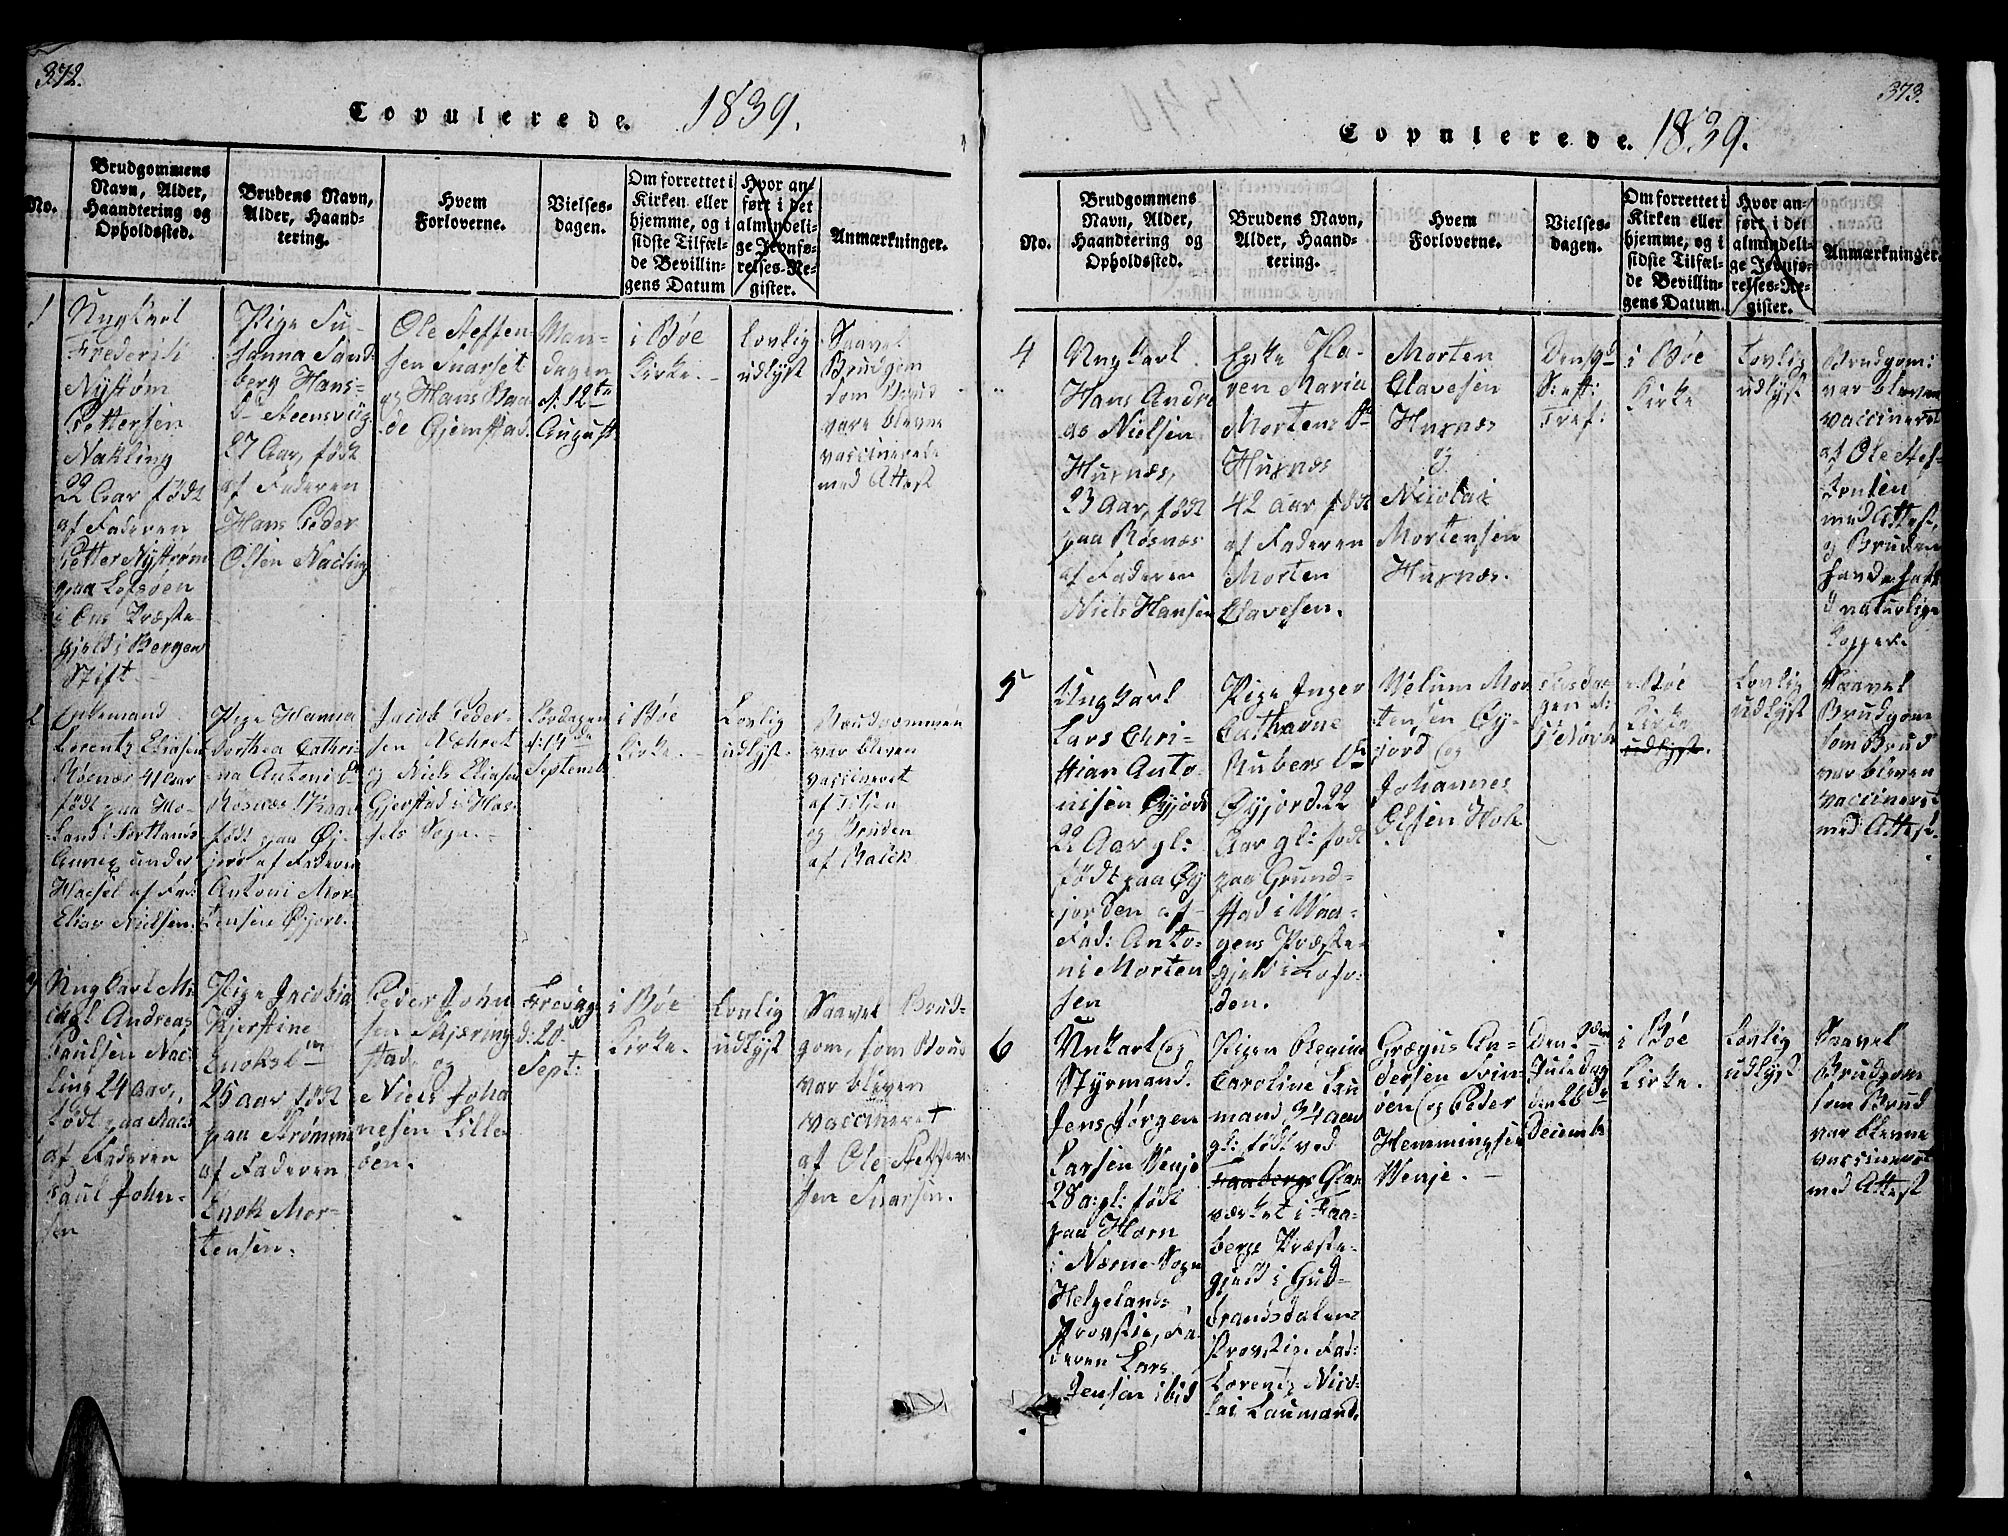 372.
Copulerede. 1839.
No.
Brudgommens
Navn, Alder,
Haandtering og
Opholdssted.
Brudens Navn,
Alder, Haand-
tering.
Hvem
Forloverne.
Vielses-
dagen.
Om forrettet i
Kirken eller
hjemme, og i
sidste Tilfæl-
de Bevillin-
gens Datum
Hvor an-
ført i det
almindeli-
ge Jevnfø-
relses-Re-
gister.
Anmærkninger.
1
Ungkarl
Frederik
Nystrøm
Pettersen
Nakling
22 Aar født
af Faderen
Petter Nystrøm
paa
i Præste-
gjeld i Bergens
Stift
Pige Su-
sanna Sand-
berg Hans-
27 Aar, født
af Faderen
Hans Peder
Olsen Nacling
Ole Steffen-
sen Snarset
og Hans
de Gjemstad
Man-
dagen
d. 12te
August
i Bøe
Kirke.
Lovlig
udlyst
Saavel
Brudgom
som Brud
vare blevne
vaccinerede
med Attest
2
Enkemand
Lorentz Eliasen
Røsnæs 41 Aar
født paa Ho-
land i Sortlands
Annex under
Hassel af Fad:
Elias Nielsen.
Pige Hanna
Dorthea Cathri-
na Antoni
Røsnæs
født paa Øj-
jord af Faderen
Antoni Mor-
tensen Øijord.
Jacob Peder-
sen
og Niels Eliasen
Gjerstad i Has-
sels Sogn.
Løverdagen
d: 14de
Septemb
i Bøe
Kirke.
Lovlig
udlyst.
Brudgommen
var bleven
vaccineret
af
og Bruden
af
3
Ungkarl
Andreas
Paulsen Nac-
ling 24 Aar,
født paa
af Faderen
Paul John-
sen
Pige Jacobia
Kjerstine
Enoks
25 aar født
paa Strømme
af Faderen
Enok Mor-
tensen.
Peder John
sen Skjering
stad og
Niels Joha
nesen Lille
øen.
Fredag
d: 20d
Sept:
i Bøe
Kirke.
Lovlig
udlyst
Saavel Brud-
gom, som Brud
var bleven
vaccineret
af Ole Steffen-
sen Snarsen.
373.
Copulerede. 1839.
No.
Brudgommens
Navn, Alder,
Haandtering og
Opholdssted.
Brudens Navn,
Alder, Haand-
tering.
Hvem
Forloverne.
Vielses-
dagen.
Om forrettet i
Kirken eller
hjemme, og i
sidste Tilfæl-
de Bevillin-
gens Datum.
Hvor an-
ført i det
almindeli-
ge Jevnfø-
relses-Re-
gister.
Anmærkninger.
4
Ungkarl
Hans Andre
as Nielsen
Husnæs,
23 Aar, født
paa Røsnæs
af Faderen
Niels Hansen
Enke
Maria
Mortens
Husnæs
42 aar født
af Faderen
Morten
Olavesen.
Morten
Olavesen
Husnæs
og
Nicolai
Mortensen
Husnæs.
Den
Sept:
i Bøe
Kirke
Lovlig
udlyst
Brudgom:
var bleven
vaccineret
af Ole Stef-
fensen
med Attest,
og Bruden
havde haft
d naturlige
Kopper.
5
Ungkarl
Lars Chri-
stian Anto-
nisen Øyjord
22 Aar gl:
født paa Øy-
jorden af
Fad: Anto-
ni Morten
sen
Pige Inger
Cathrine
Rubers
Øyjord. 22
Aar gl: født
paa Grund-
stad i Waa-
gens Præste-
gjeld i Lofo-
den.
Velum Mor
tensen Øy-
jord og
Johannes
Olsen Hok
Tirsda-
gen d:
5 Novb
i Bøe
Kirke
udlyst.
Lovlig
udlyst
Saavel
Brudgom
som Brud
var bleven
vaccineret
med Attest.
6
Unkarl og
Styrmand.
Jens Jørgen
Larsen Venje
28 a: gl: født
paa Horn
i Næsne Sogn
Helgelands
Provstie, Fa-
deren Lars
Jensen ibid
Pigen Olegine
Caroline Lau
mand 34 aar
gl: født ved
Faabergs Glas
værket i Faa-
bergs Præste-
gjeld i Gud-
brandsdalens
Provstie Fad:
Lorentz Nico-
lai Laumand.
Græqus An-
dersen Svin-
øen og Peder
Hemmingsen
Wenje.
Den 2den
Juledag
den 26de
Decemb
i Bøe
Kirke.
Lovlig
udlyst
Saavel
Brudgom
som Brud
var blevne
vaccineret
med Attest